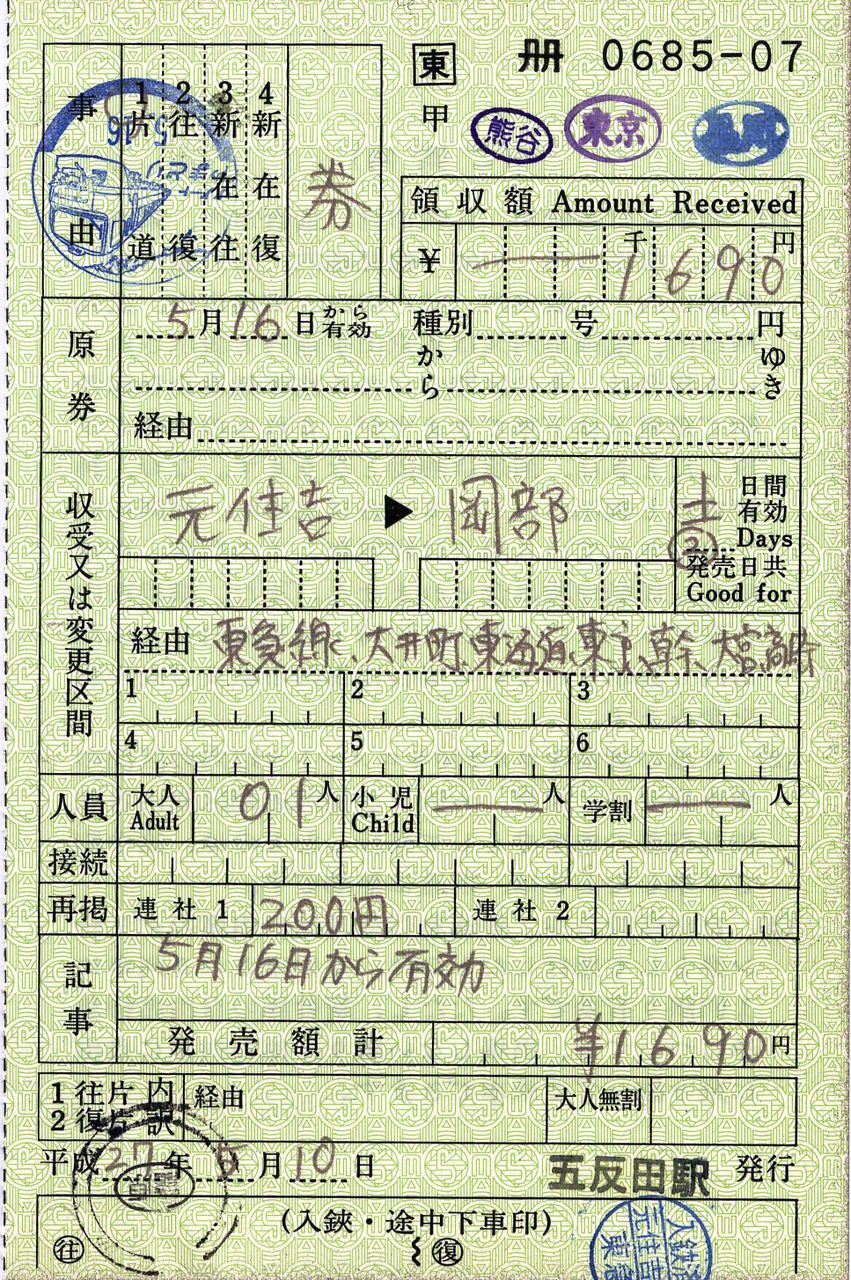 東 冊 0685-07
甲 熊谷 東京
事由 1片道 2往復 3新在往 4新在復 券
領収額 Amount Received
¥ 一 千 1690 円
原券 5月16日から有効 種別 号 円
から ゆき
経由
収受又は変更区間 元住吉 ▶ 岡部
日間有効 Days
② 発売日共 Good for
経由 東急線、大井町、東海道、東京、幹、大宮、高崎
1 2 3
4 5 6
人員 大人 Adult 01人 小児 Child 一人 学割 一人
接続
再掲 連社1 200円 連社2
記事 5月16日から有効
発売額計 ¥1690円
1往片 2復片 内訳 経由 大人無割
平成27年5月10日 五反田駅 発行
(入鋏・途中下車印)
往 復